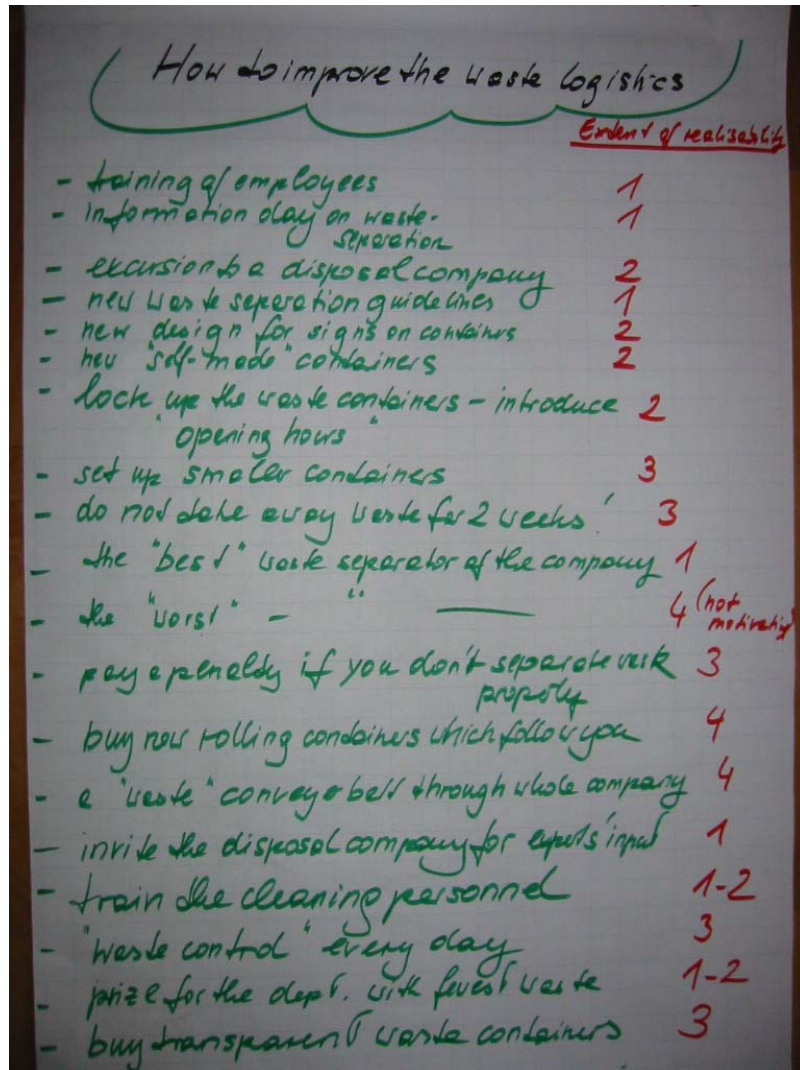 How to improve the waste logistics
Extent of realisability
- training of employees 1
- information day on waste- 1
separation
- excursion to a disposal company 2
- new waste separation guidelines 1
- new design for signs on containers 2
- new "self-made" containers 2
- lock up the waste containers - introduce 2
"opening hours"
- set up smaller containers 3
- do not take away waste for 2 weeks! 3
- the "best" waste separator of the company 1
- the "worst" - " — 4 (not
motivating)
- pay a penalty if you don't separate waste 3
properly
- buy new rolling containers which follow you 4
- a "waste" conveyor belt through whole company 4
- invite the disposal company for experts' input 1
- train the cleaning personnel 1-2
- "waste control" every day 3
- prize for the dept. with fewest waste 1-2
- buy transparent waste containers 3